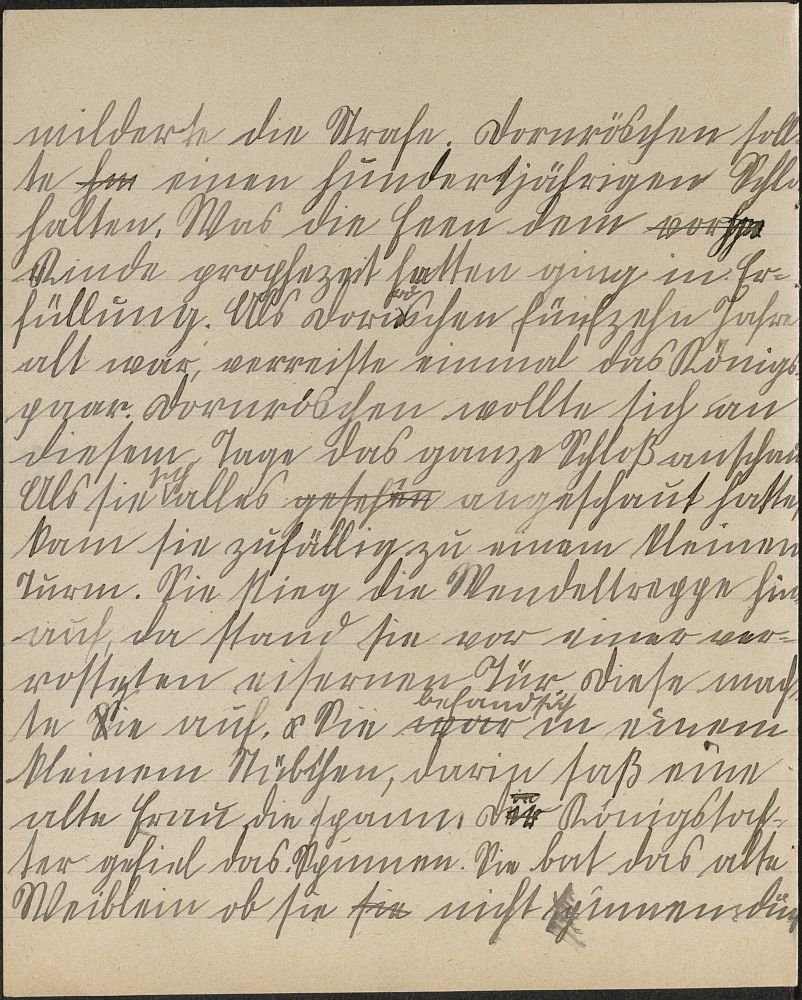 milderte die Strafe. Dornröschen soll-
te einen hundertjährigen Schla
halten. Was die Feen dem
Kinde prophezeit hatten ging in Er-
füllung. Als Dornröschen fünfzehn Jahre
alt war, verreiste einmal das Königs
paar. Dornröschen wollte sich an
diesem Tage das ganze Schloß anschau
Als sie sich alles gesehen angeschaut hatte,
kam sie zufällig zu einem kleinen
Turm. Sie stieg die Wendeltreppe hin-
auf, da stand sie vor einer ver-
rosteten eisernen Tür. Diese mach
te sie auf. Sie war befand sich in einem
kleinem Stübchen, darin saß eine
alte Frau die spann. Der Königstoch-
ter gefiel das Spinnen. Sie bat das alte
Weiblein ob sie sie nicht spinnen dür